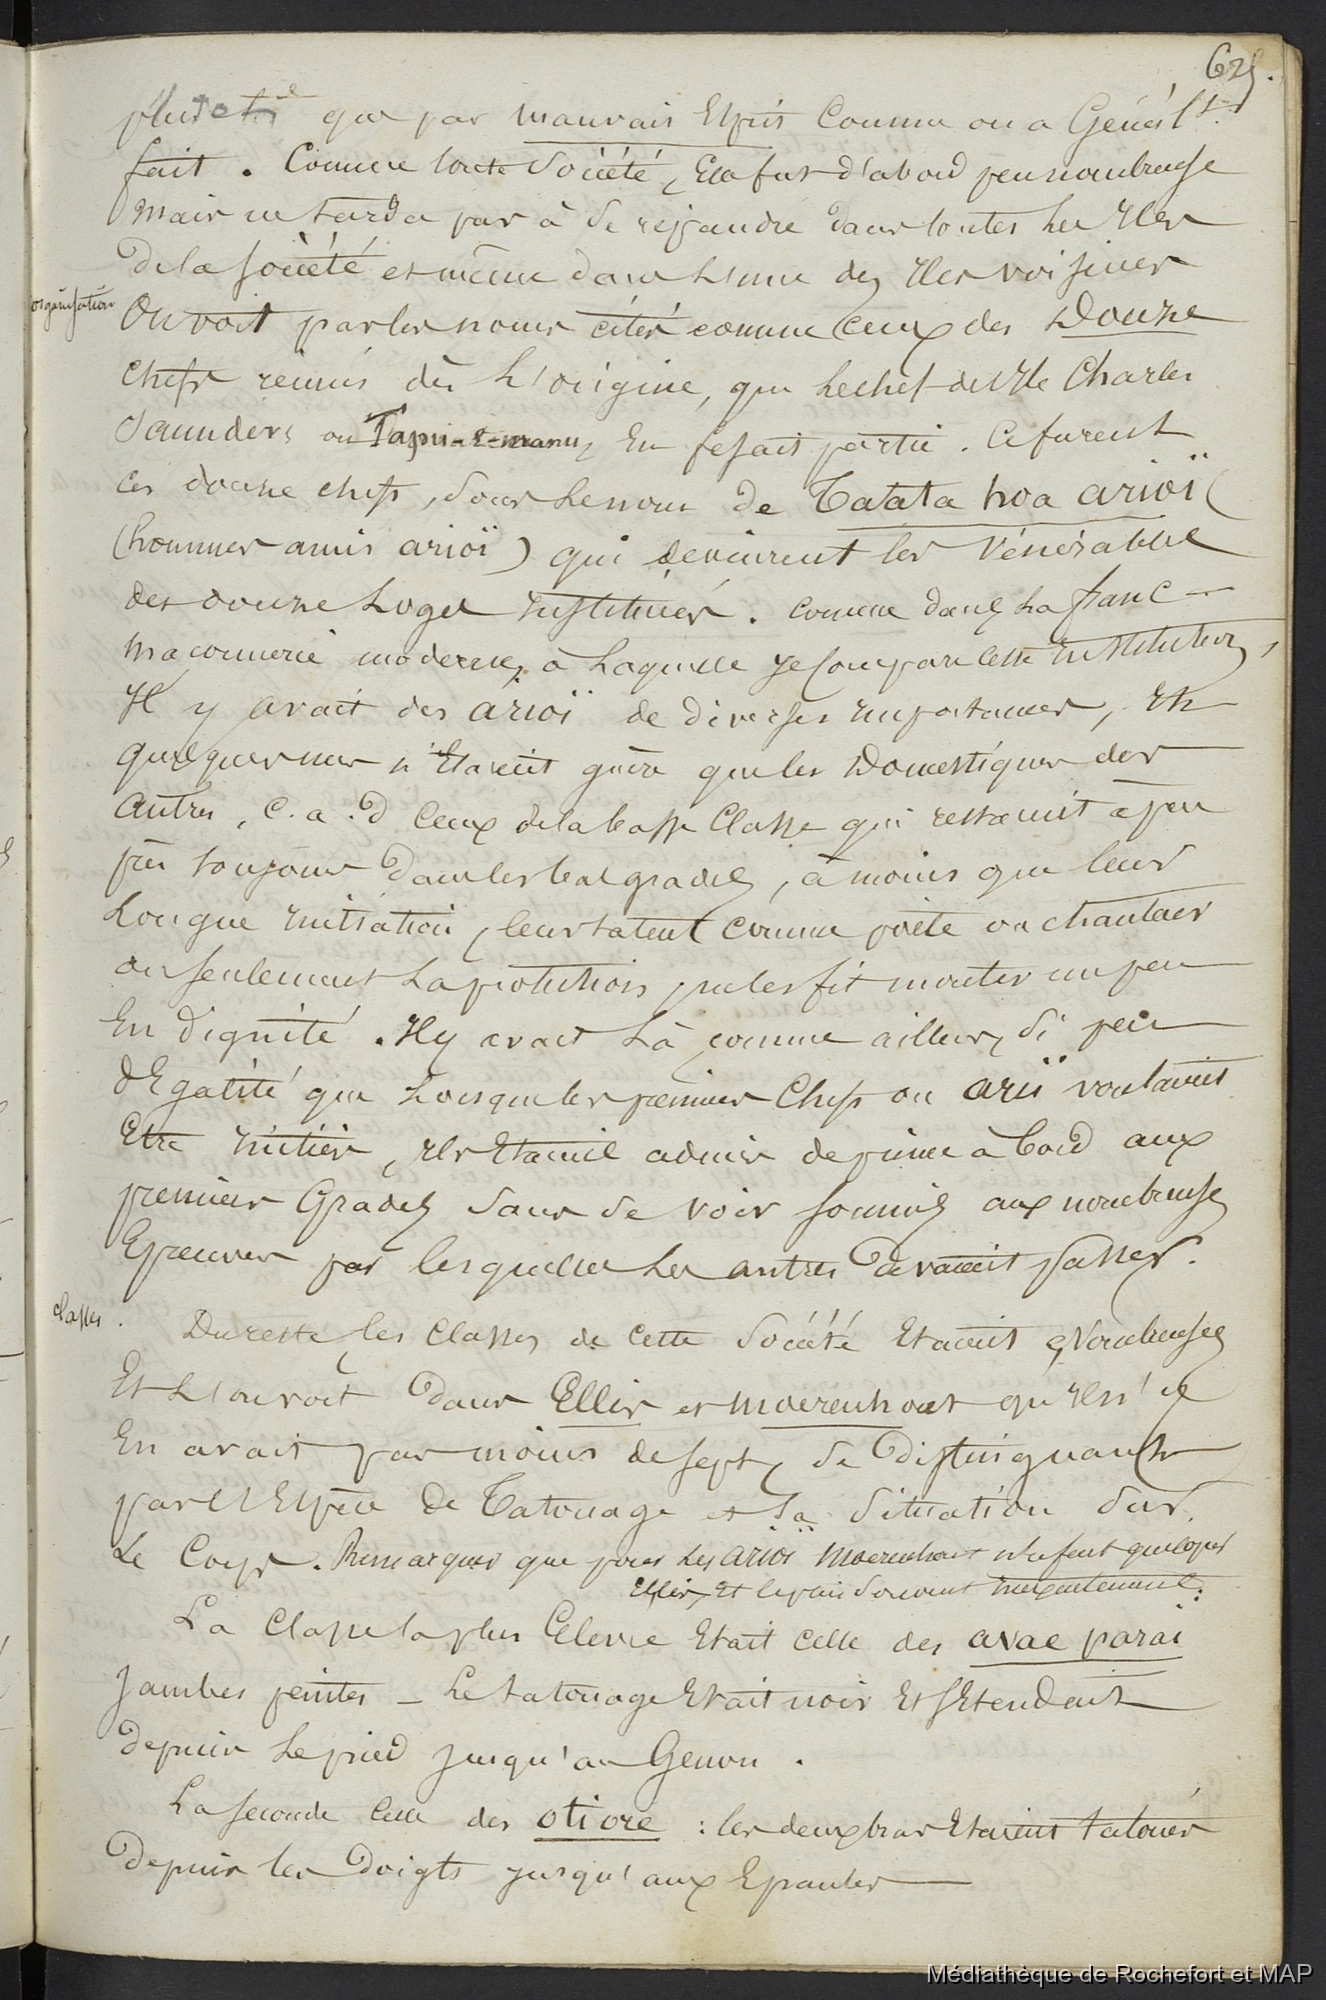 625.
plutot que par mauvais Esprit Comme on a Génélt.
fait. Comme toute Société, Elle fut d'abord peu nombreuse
mais ne tarda pas à se répandre dans toutes les Iles
de la Société et même dans L'une des Iles voisines
organisation
On voit par les noms cités comme Ceux des Douze
chefs réunis dès L'origine, que le chef de l'Ile Charles
Saunders ou Tapu-a-manu, En fesait partie. Ce furent
ces douze chefs, sous le nom de Tatata hoa arioï
(hommes amis arioï) qui devinrent les Vénérables
des douze Loges Instituées. Comme dans la franc-
maconnerie moderne, à Laquelle je Compare cette Institution,
Il y avait des arioï de diverses importances, Et
quelques uns n'Etaient guère que les Domestiques des
autres, c. a. d Ceux de la basse Classe qui restaient à peu
près toujours dans les bas grades, à moins que leur
Longue initiation, leur talent comme poëte ou chanteur
ou seulement La protection, ne les fit monter un peu
En dignité. Il y avait Là comme ailleurs, si peu
d'Egalité que Lorsque les premiers Chefs ou arii voulaient
Etre initiés, ils Etaient admis de prime à bord aux
premiers Grades sans se voir soumis aux nombreuses
Epreuves par lesquelles Les autres devaient passer.
classes.
Du reste, les Classes de cette Société Etaient Nombreuses
Et L'on voit Dans Ellis et Moerenhout qu'il n'y
En avait pas moins de sept, se Distinguant
par L'Espèce de Tatouage et sa situation sur
Le Corps. Remarquer que pour Les arioï Moerenhout n'a fait que copier
Ellis, Et le plus souvent inexactement.
La Classe la plus Elevée Etait celle des avae parai
Jambes peintes - Le tatouage Etait noir Et s'Etendait
depuis Le pied jusqu'au Genou.
La seconde celle des otiore : les deux bras Etaient tatoués
Depuis les Doigts jusqu'aux Epaules
Médiathèque de Rochefort et MAP